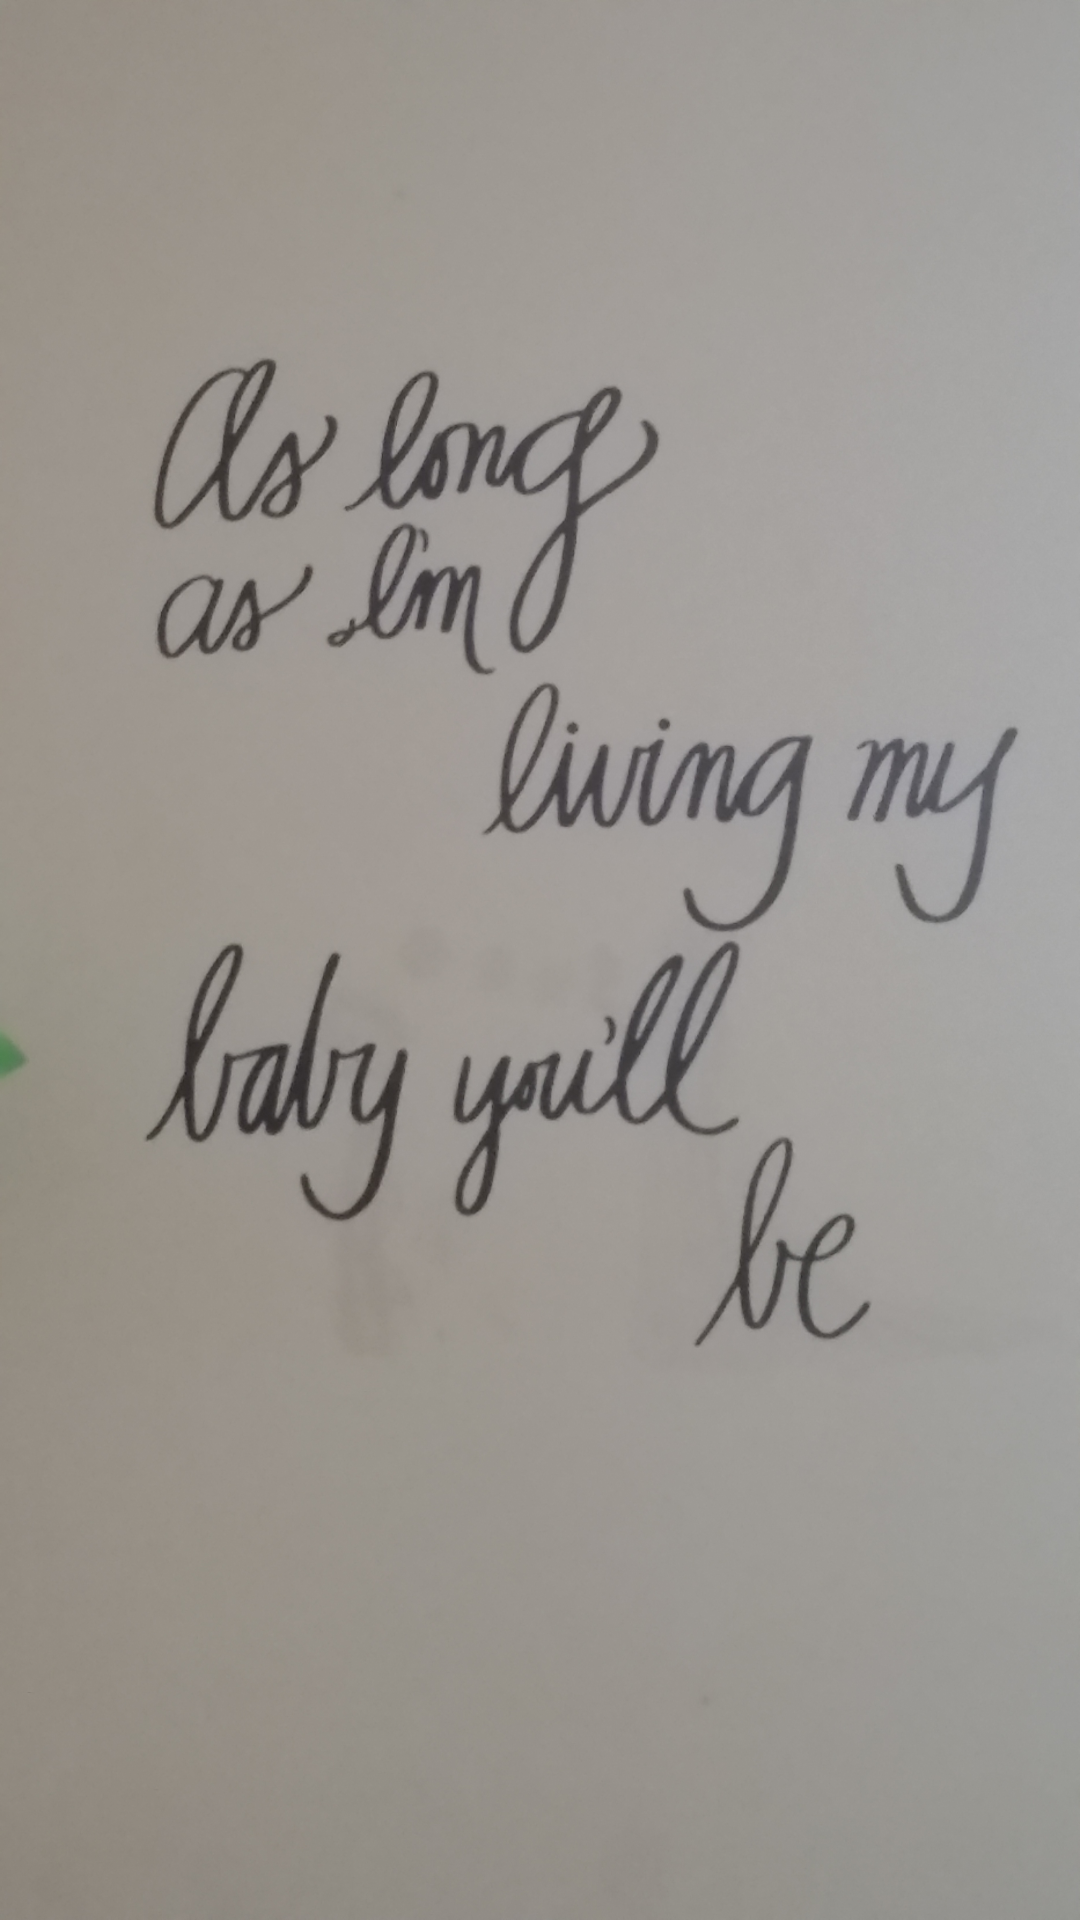 As long
as I'm
living my
baby you'll
be